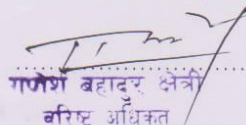 गणेश बहादुर क्षेत्री
बरिष्ट अधिकृत